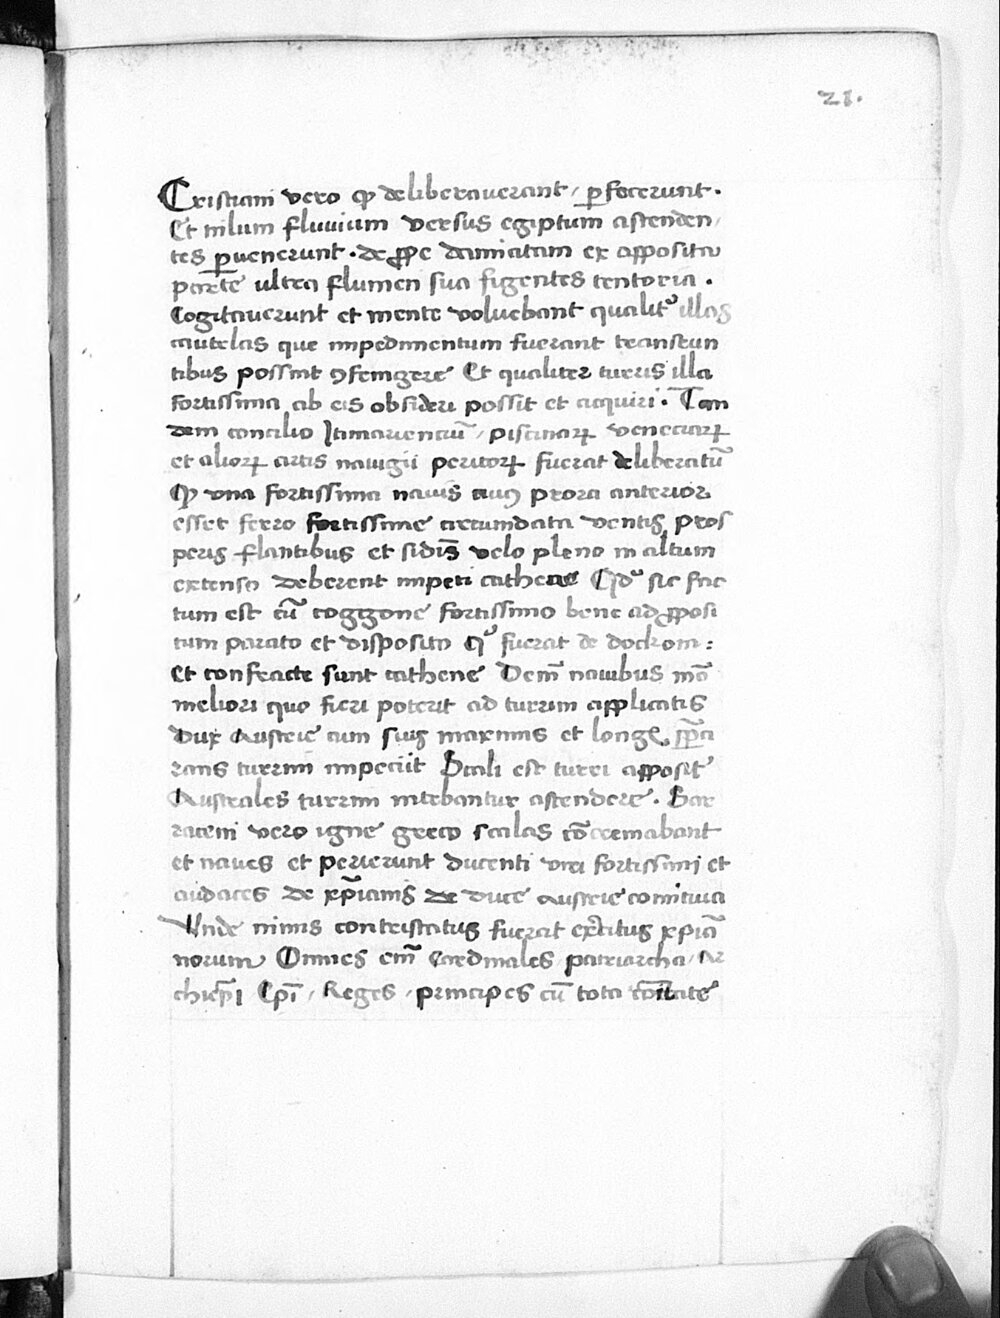 21.
Cristiani vero qꝫ deliberauerant / ꝑfecerunt .
Et nilum fluuium versus egiptum astenden/
tes ꝑuenerunt . de ꝓpe damiatam ex apposita
parte ultra flumen sua figentes tentoria .
Cogitauerunt et mente voluebant qualitˀ illas
cautelas que impedimentum fuerant transeun
tibus possint ꝯfringere Et qualiter turris illa
fortissima ab eis obsideri possit et acquiri . Tan
dem concilio / pisanoꝝ venecioꝝ
et alioꝝ artis nauigii peritoꝝ fuerat deliberatū
qꝫ vna fortissima nauis cuiꝯ prora anterior
esset ferro fortissime circumdata ventis pros
peris flantibus et velo pleno in altum
extenso deberent impeti cathene Qdˀ sic fac
tum est cū coggone fortissimo bene ad ꝓposi
tum parato et disposito qˀ fuerat de dockom :
et confracte sunt cathene Demū nauibus mō
meliori quo fieri poterit ad turrim applicatis
Dux Austrie cum suis maximis et longe
rans turrim impeciit Scali est turri apposit'
Australes turrim nitebantur astendere . Sar
raceni vero igne greco scalas cōcremabant
et naues et perierunt ducenti viri fortissimi et
audaces de xp̄ianis de duce austrie comitiua
Unde nimis contristatus fuerat exercitus xpiā
norum Omnes em̄ Cardinales / patriarcha / Ar
chiep̄i Ep̄i / Reges / principes cū tota cōitate